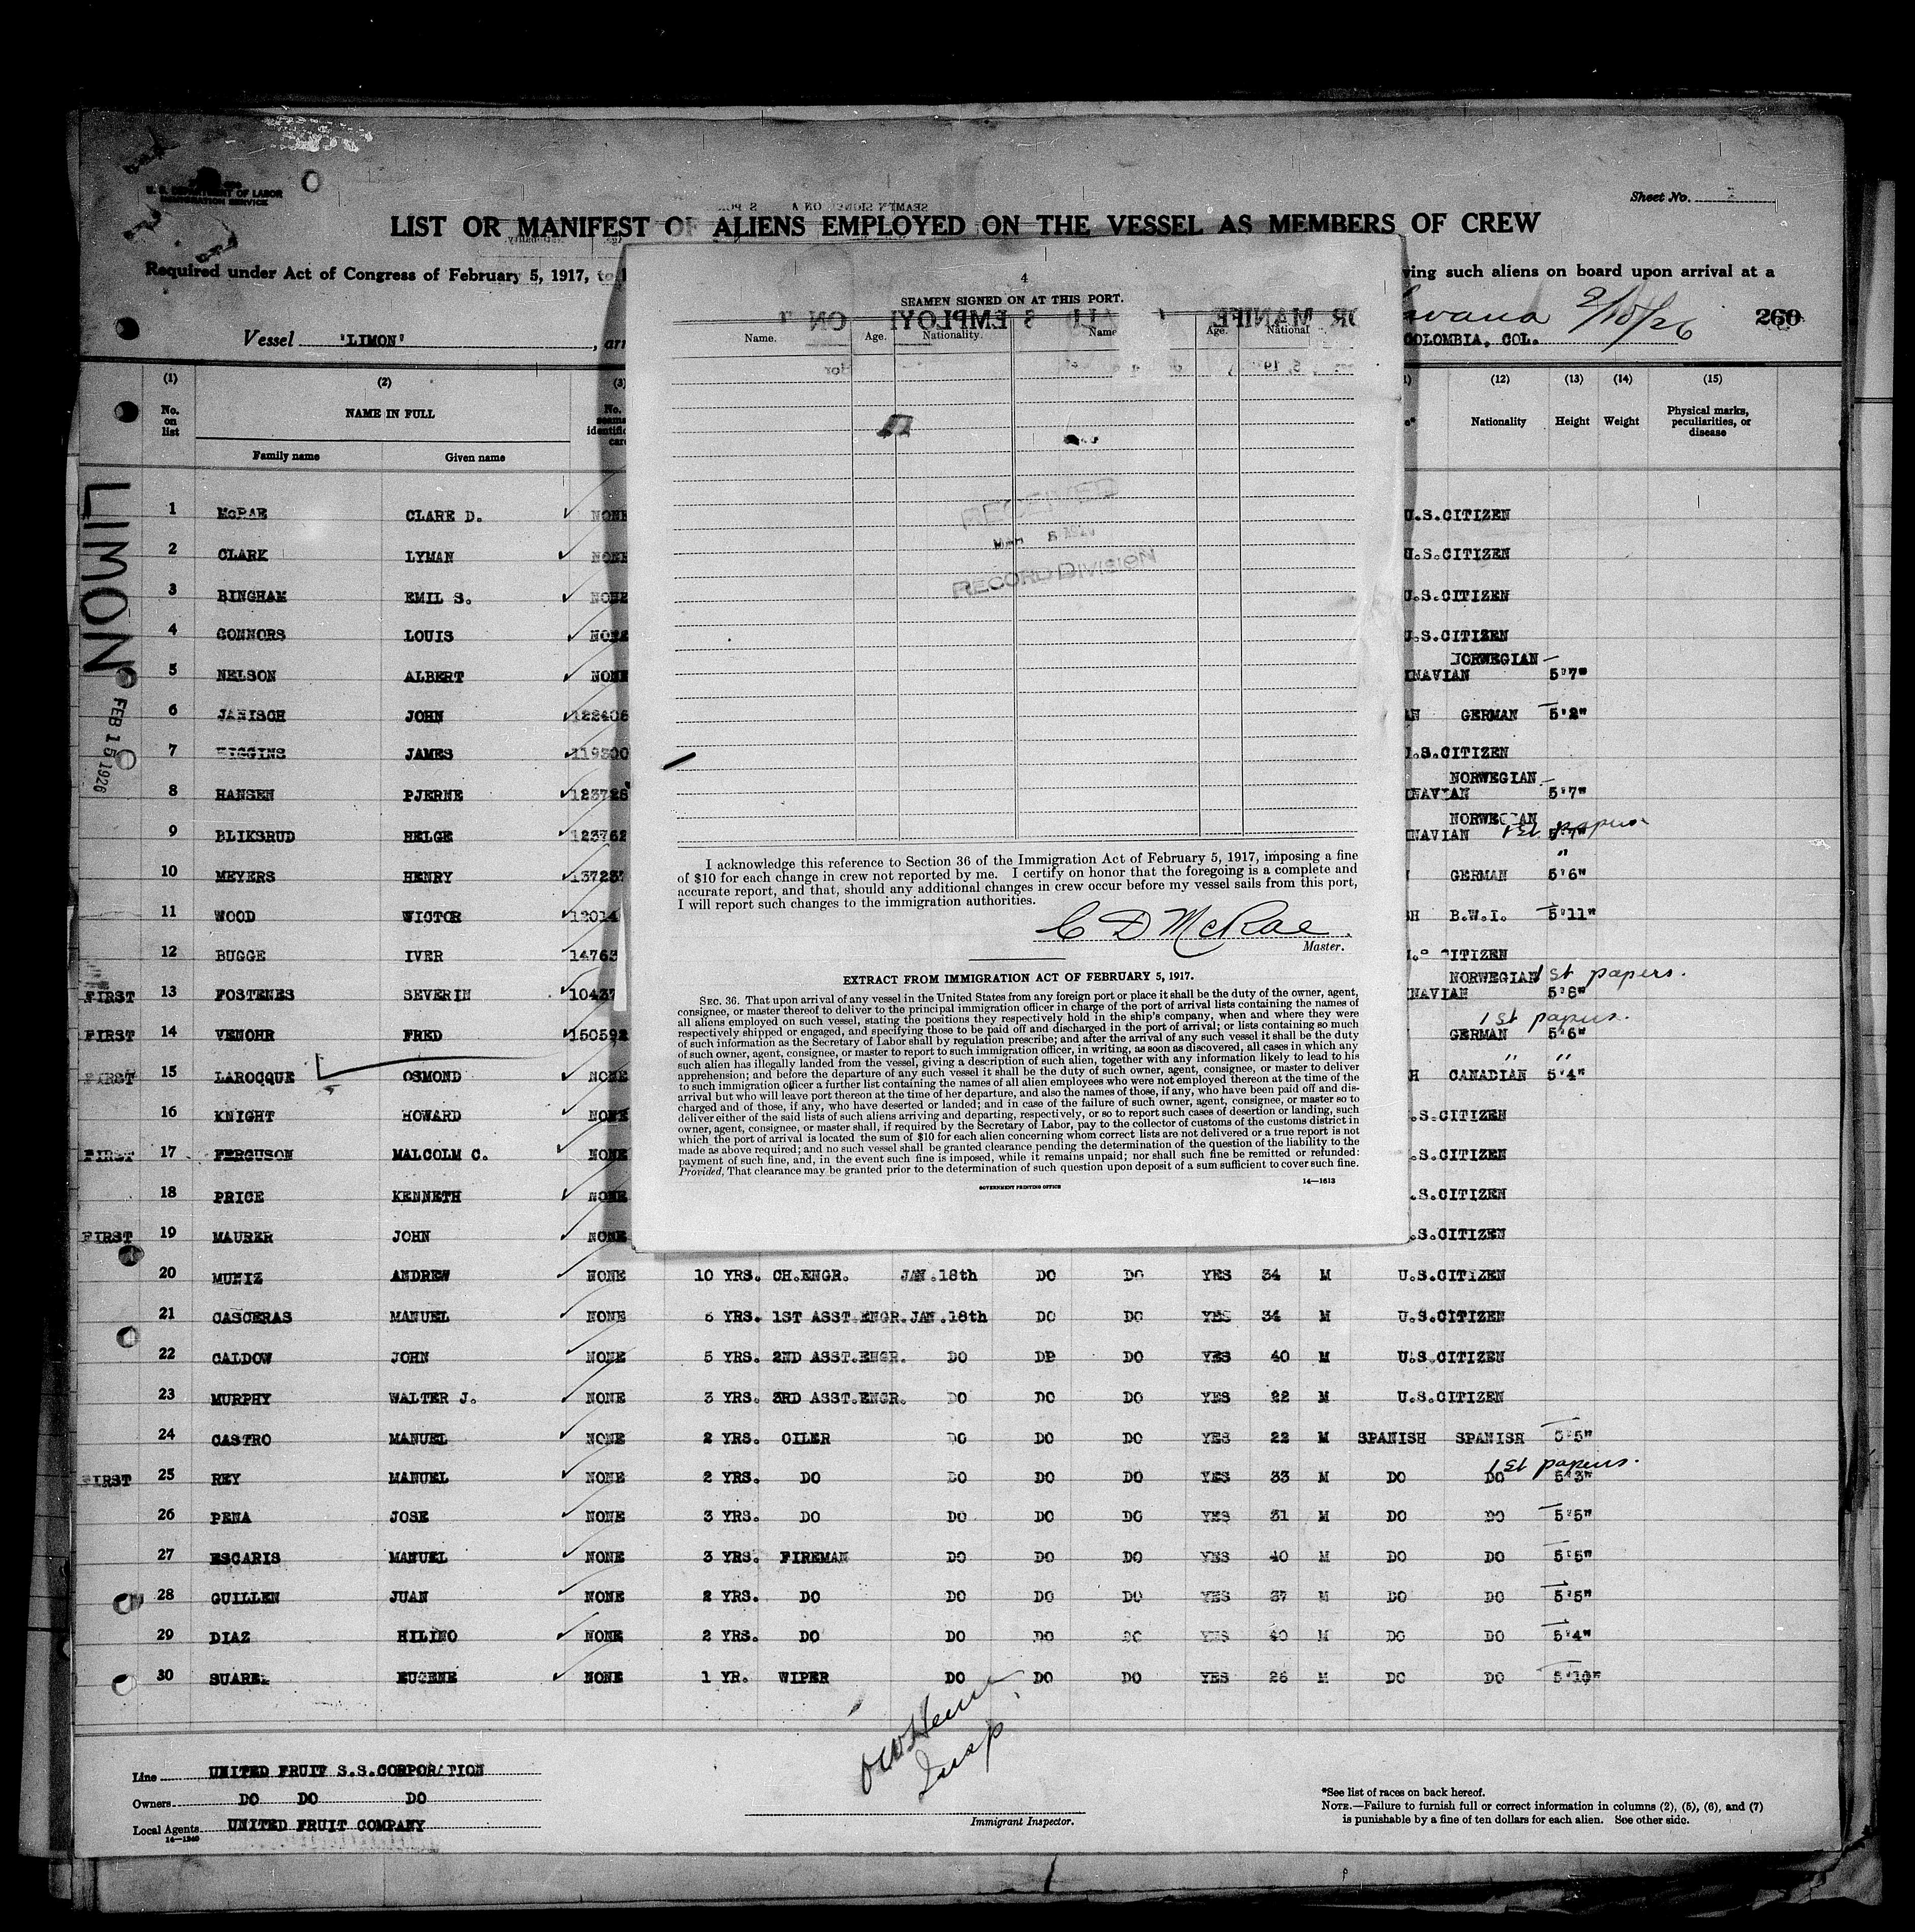 U. S. DEPARTMENT OF LABOR
IMMIGRATION SERVICE
Sheet No.
LIST OR MANIFEST OF ALIENS EMPLOYED ON THE VESSEL AS MEMBERS OF CREW
Required under Act of Congress of February 5, 1917, to
ving such aliens on board upon arrival at a
2/10/26
260
Vessel "LIMON", arr
COLOMBIA, COL.
(1) (2) (3) (12) (13) (14) (15)
No. on list NAME IN FULL Nationality Height Weight Physical marks, peculiarities, or disease
Family name Given name
LIMON
FEB 15 1926
1 McRAE CLARE D. NONE U.S.CITIZEN
2 CLARK LYMAN NONE U.S.CITIZEN
3 BINGHAM EMIL S. NONE U.S.CITIZEN
4 CONNORS LOUIS NONE U.S.CITIZEN
5 NELSON ALBERT NONE INAVIAN NORWEGIAN 5'7"
6 JANISCH JOHN 122406 AN GERMAN 5'2"
7 HIGGINS JAMES 119300 U.S.CITIZEN
8 HANSEN PJERNE 123728 INAVIAN NORWEGIAN 5'7"
9 BLIKSRUD HELGE 123762 INAVIAN NORWEGIAN 1st papers 5'7"
10 MEYERS HENRY 137237 GERMAN 5'6"
11 WOOD WICTOR 12014 SH B.W.I. 5'11"
12 BUGGE IVER 14763 CITIZEN
FIRST 13 FOSTENES SEVERIN 10437 NAVIAN NORWEGIAN 1st papers. 5'8"
FIRST 14 VENOHR FRED 150592 GERMAN 1st papers. 5'6"
FIRST 15 LAROCQUE OSMOND NONE H CANADIAN " " 5'4"
16 KNIGHT HOWARD NONE .S.CITIZEN
FIRST 17 FERGUSON MALCOLM C. NONE .S.CITIZEN
18 PRICE KENNETH NONE .S.CITIZEN
FIRST 19 MAURER JOHN NONE .S.CITIZEN
20 MUNIZ ANDREW NONE 10 YRS. CH.ENGR. JAN.18th DO DO YES 34 M U.S.CITIZEN
21 CASCERAS MANUEL NONE 6 YRS. 1ST ASST.ENGR. JAN.18th DO DO YES 34 M U.S.CITIZEN
22 CALDOW JOHN NONE 5 YRS. 2ND ASST.ENGR. DO DP DO YES 40 M U.S.CITIZEN
23 MURPHY WALTER J. NONE 3 YRS. 3RD ASST.ENGR. DO DO DO YES 22 M U.S.CITIZEN
24 CASTRO MANUEL NONE 2 YRS. OILER DO DO DO YES 22 M SPANISH SPANISH 5'5"
FIRST 25 REY MANUEL NONE 2 YRS. DO DO DO DO YES 33 M DO DO 1st papers. 5'3"
26 PENA JOSE NONE 3 YRS. DO DO DO DO YES 31 M DO DO 5'5"
27 ESCARIS MANUEL NONE 3 YRS. FIREMAN DO DO DO YES 40 M DO DO 5'5"
28 GUILLEN JUAN NONE 2 YRS. DO DO DO DO YES 37 M DO DO 5'5"
29 DIAZ HILINO NONE 2 YRS. DO DO DO DO YES 40 M DO DO 5'4"
30 SUAREZ EUGENE NONE 1 YR. WIPER DO DO DO YES 26 M DO DO 5'10"
4
SEAMEN SIGNED ON AT THIS PORT.
Name. Age. Nationality. Name Age. National
RECEIVED
MAR
RECORD DIVISION
I acknowledge this reference to Section 36 of the Immigration Act of February 5, 1917, imposing a fine
of $10 for each change in crew not reported by me. I certify on honor that the foregoing is a complete and
accurate report, and that, should any additional changes in crew occur before my vessel sails from this port,
I will report such changes to the immigration authorities.
C D McRae
Master.
EXTRACT FROM IMMIGRATION ACT OF FEBRUARY 5, 1917.
SEC. 36. That upon arrival of any vessel in the United States from any foreign port or place it shall be the duty of the owner, agent,
consignee, or master thereof to deliver to the principal immigration officer in charge of the port of arrival lists containing the names of
all aliens employed on such vessel, stating the positions they respectively hold in the ship's company, when and where they were
respectively shipped or engaged, and specifying those to be paid off and discharged in the port of arrival; or lists containing so much
of such information as the Secretary of Labor shall by regulation prescribe; and after the arrival of any such vessel it shall be the duty
of such owner, agent, consignee, or master to report to such immigration officer, in writing, as soon as discovered, all cases in which any
such alien has illegally landed from the vessel, giving a description of such alien, together with any information likely to lead to his
apprehension; and before the departure of any such vessel it shall be the duty of such owner, agent, consignee, or master to deliver
to such immigration officer a further list containing the names of all alien employees who were not employed thereon at the time of the
arrival but who will leave port thereon at the time of her departure, and also the names of those, if any, who have been paid off and dis-
charged and of those, if any, who have deserted or landed; and in case of the failure of such owner, agent, consignee, or master so to
deliver either of the said lists of such aliens arriving and departing, respectively, or so to report such cases of desertion or landing, such
owner, agent, consignee, or master shall, if required by the Secretary of Labor, pay to the collector of customs of the customs district in
which the port of arrival is located the sum of $10 for each alien concerning whom correct lists are not delivered or a true report is not
made as above required; and no such vessel shall be granted clearance pending the determination of the question of the liability to the
payment of such fine, and, in the event such fine is imposed, while it remains unpaid; nor shall such fine be remitted or refunded:
Provided, That clearance may be granted prior to the determination of such question upon deposit of a sum sufficient to cover such fine.
GOVERNMENT PRINTING OFFICE
14—1613
Insp.
Immigrant Inspector.
Line UNITED FRUIT S.S.CORPORATION
Owners DO DO DO
Local Agents UNITED FRUIT COMPANY
14—1240
*See list of races on back hereof.
NOTE.—Failure to furnish full or correct information in columns (2), (5), (6), and (7)
is punishable by a fine of ten dollars for each alien. See other side.